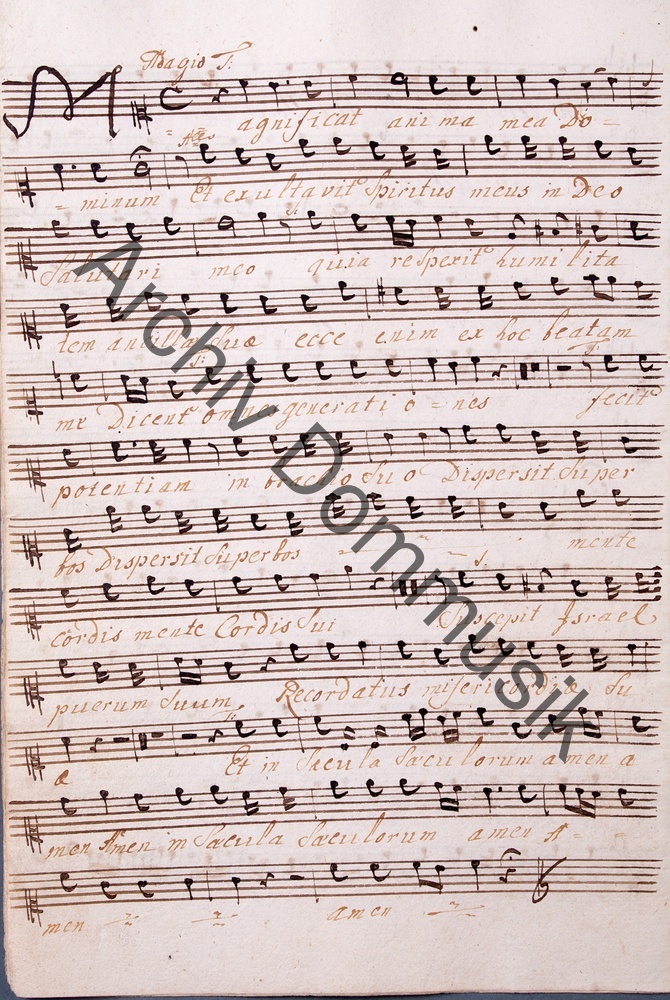 Adagio T:
M agnificat anima mea Do -
- minum Et exultavit Spiritus meus in Deo
Salutari meo quia respexit humilita
tem ancilla Suæ ecce enim ex hoc beatam
me Dicent omnes generati o - nes fecit
potentiam in brachio Su o Dispersit Super
bos Dispersit Superbos mente
cordis mente Cordis Sui Suscepit Israel
puerum Suum, Recordatus misericordiæ Su
æ Et in Sæcula Sæculorum amen a
men Amen in Sæcula Sæculorum amen A -
men amen
Archiv Dommusik